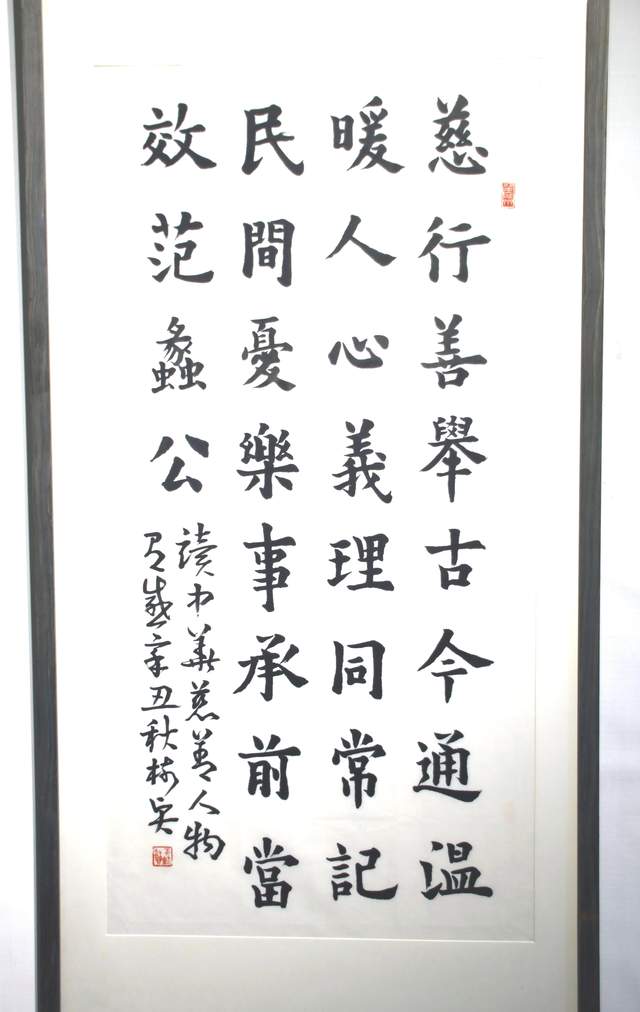 慈行善舉古今通溫
暖人心義理同常記
民間憂樂事承前當
效范蠡公
讀中華慈善人物
有感辛丑秋樹